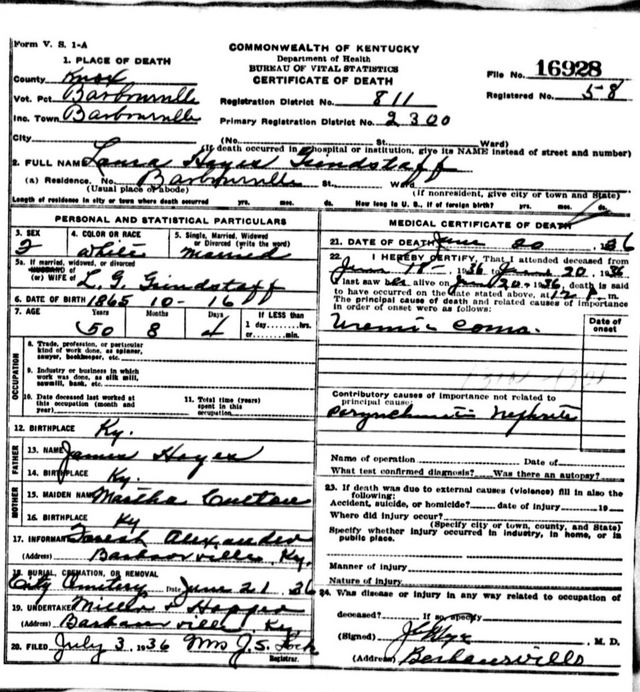 Form V. S. 1-A
COMMONWEALTH OF KENTUCKY
Department of Health
BUREAU OF VITAL STATISTICS
CERTIFICATE OF DEATH
1. PLACE OF DEATH
County Knox
Vot. Pct Barbourville
Inc. Town Barbourville
File No. 16928
Registered No. 58
Registration District No. 811
Primary Registration District No. 2300
City (No. St. Ward)
(If death occurred in hospital or institution, give its NAME instead of street and number)
2. FULL NAME Laura Hayes Grindstaff
(a) Residence. No. Barbourville St. Ward
(Usual place of abode) (If nonresident, give city or town and State)
Length of residence in city or town where death occurred yrs. mos. ds. How long in U. S., if of foreign birth? yrs. mos. ds.
PERSONAL AND STATISTICAL PARTICULARS
3. SEX 4. COLOR OR RACE 5. Single, Married, Widowed
or Divorced (write the word)
White married
5a. If married, widowed, or divorced
HUSBAND of
(or) WIFE of L. G. Grindstaff
6. DATE OF BIRTH 1865 10-16
7. AGE Years Months Days If LESS than
1 day, hrs.
or min.
50 8 4
OCCUPATION
8. Trade, profession, or particular
kind of work done, as spinner,
sawyer, bookkeeper, etc.
9. Industry or business in which
work was done, as silk mill,
sawmill, bank, etc.
10. Date deceased last worked at
this occupation (month and
year)
11. Total time (years)
spent in this
occupation
12. BIRTHPLACE Ky.
FATHER
13. NAME James Hayes
14. BIRTHPLACE Ky.
MOTHER
15. MAIDEN NAME Martha Culton
16. BIRTHPLACE Ky
17. INFORMANT Alexander
(Address) Barbourville, Ky.
18. BURIAL, CREMATION, OR REMOVAL
City Cemetery Date June 21, 36
19. UNDERTAKER Miller & Hopper
(Address) Barbourville, Ky
20. FILED July 3, 1936 Mrs J. S. Lock
Registrar.
MEDICAL CERTIFICATE OF DEATH
21. DATE OF DEATH June 20 1936
22. I HEREBY CERTIFY, That I attended deceased from
June 18-, 1936 to June 20, 1936
I last saw her alive on June 20, 1936, death is said
to have occurred on the date stated above, at 12 P. m.
The principal cause of death and related causes of importance
in order of onset were as follows:
Date of
onset
Uremic Coma.
Contributory causes of importance not related to
principal cause:
Parynchimatis Nephritis
Name of operation Date of
What test confirmed diagnosis? Was there an autopsy?
23. If death was due to external causes (violence) fill in also the
following:
Accident, suicide, or homicide? date of injury 19
Where did injury occur?
(Specify city or town, county, and State)
Specify whether injury occurred in industry, in home, or in
public place.
Manner of injury
Nature of injury
24. Was disease or injury in any way related to occupation of
deceased? If so, specify
(Signed) M. D.
(Address) Barbourville